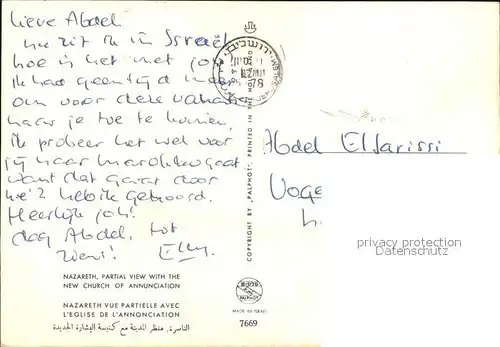 Lieve Abdel
nu zit ik in Israel
hoe is het met jou
Ik had geen tijd meer
om voor deze vakantie
naar je toe te komen.
Ik probeer het wel voor
jij naar marokko gaat
want dat gaat door
hè? heb ik gehoord.
Heerlijk joh!
dag Abdel, tot
Elly
NAZARETH, PARTIAL VIEW WITH THE
NEW CHURCH OF ANNUNCIATION
NAZARETH VUE PARTIELLE AVEC
L'EGLISE DE L'ANNONCIATION
الناصرة، منظر المدينة مع كنيسة البشارة الجديدة
COPYRIGHT BY "PALPHOT", PRINTED IN THE HOLY LAND
ירושלים
78
PALPHOT
MADE IN ISRAEL
7669
Abdel El
Voge
privacy protection
Datenschutz